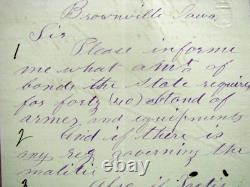 Brownville Iowa
Sir
1 Please informe
me what amts of
bonds the State requires
for forty (40) stand of
armes and equipments
2 And if there is
any reg governing the
malitia
3 Also if